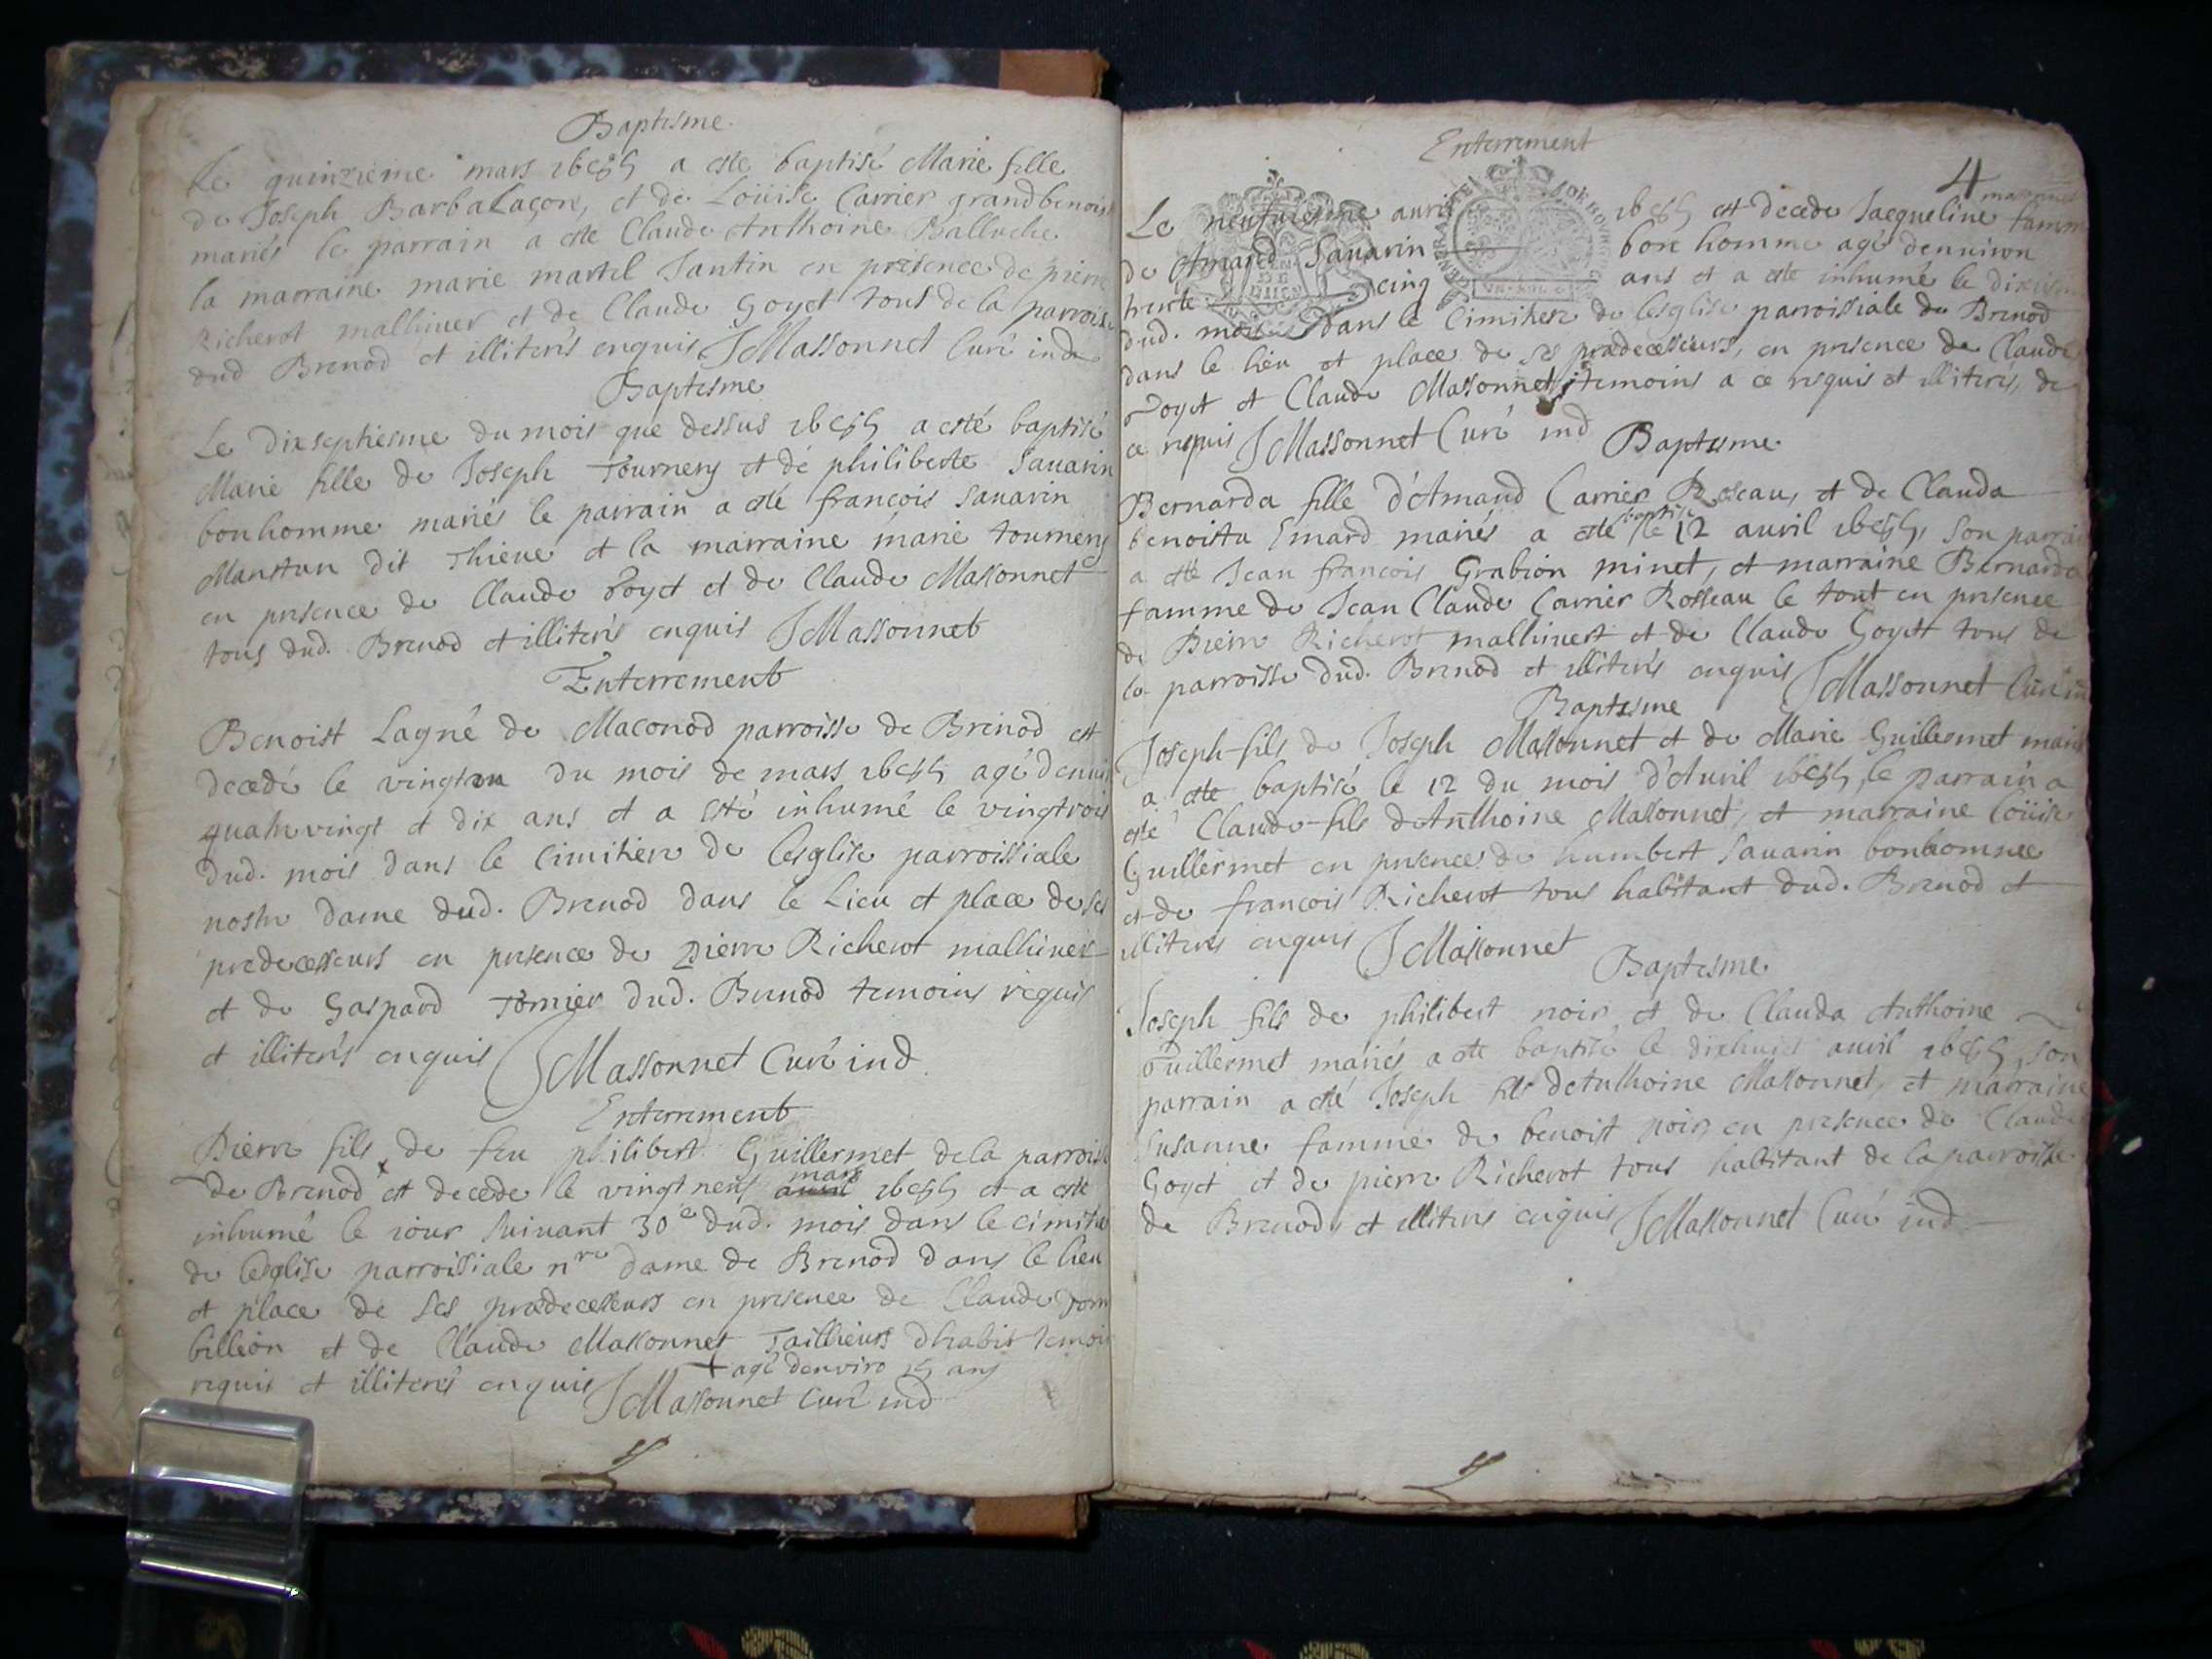 Baptesme
Le quinzieme mars 1685 a este baptisé Marie fille
de Joseph Barbalaçon, et de Loüise Carrier grandbenoist
mariés le parrain a este Claude Anthoine Balluche
la marraine marie martel Jantin en presence de pierre
Richerot malliner et de Claude Goyet tous de la parroisse
dud Brenod et illiterés enquis JMassonnet Curé ind
Baptesme
Le dixseptiesme du mois que dessus 1685 a esté baptisé
Marie fille de Joseph Tournery et de philiberte Sauarin
bonhomme mariés le parrain a esté francois Sauarin
dit Thieue et la marraine marie tournery
en presence de Claude Goyet et de Claude Massonnet
tous dud. Brenod et illiterés enquis JMassonnet
Enterrement
Benoist Lagné de Maconod parroisse de Brenod est
decedé le vingt un du mois de mars 1685 agé denui
quatrevingt et dix ans et a esté inhumé le vingtrois
dud. mois dans le Cimitiere de lesglise parroissiale
nostre dame dud. Brenod dans le Lieu et place de ses
predecesseurs en presence de pierre Richerot malliner
et de Gaspard Tornier dud. Brenod temoins requis
et illiterés enquis JMassonnet Curé ind.
Enterrement
Pierre fils de feu philibert Guillermet de la parroisse
de Brenod x est decede le vingt neuf mars 1685 et a este
inhumé le iour suiuant 30e dud. mois dans le cimitie
de leglise parroissiale nre dame de Brenod dans le lieu
et place de ses predecesseurs en presence de Claude
billion et de Claude Massonnet Taillieurs dhabit temoin
requis et illiterés enquis
x agé denviro 15 ans
JMassonnet Curé ind
Enterrement
4
Le neufuiesme auril 1685 est decede Jacqueline massonnet famme
de Amand Sauarin bon homme agé denuiron
trente cinq ans et a este inhumé le dixiesm
dud. mois dans le Cimitiere de lesglise parroissiale de Brenod
dans le lieu et place de ses predecesseurs, en presence de Claude
Goyet et Claude Massonnet temoins a ce requis et illiterés, de
ce requis JMassonnet Curé ind
Baptesme
Bernarda fille d'Amand Carrier Roseau, et de Clauda
benoista Emard mariés a este baptisé le 12 auril 1685, Son parrain
a este Jean francois Grabion minet, et marraine Bernarda
famme de Jean Claude Carrier Rosseau le tout en presence
de Pierre Richerot mallinert et de Claude Goyet tous de
la parroisse dud. Brenod et illiterés enquis JMassonnet Curé ind
Baptesme
Joseph fils de Joseph Massonnet et de Marie Guillermet mariés
a este baptisé le 12 du mois d'Auril 1685, le parrain a
esté Claude fils dAnthoine Massonnet, et marraine Loüise
Guillermet en presence de humbert Sauarin bonhomme
et de francois Richerot tous habitant dud. Brenod et
illiterés enquis JMassonnet
Baptesme
Joseph fils de philibert noir et de Clauda Anthoine
Guillermet mariés a este baptisé le dixhuict auril 1685, son
parrain a esté Joseph fils dAnthoine Massonnet, et marraine
Susanne famme de benoist noir, en presence de Claude
Goyet et de pierre Richerot tous habitant de la parroisse
de Brenod, et illiterés enquis JMassonnet Curé ind